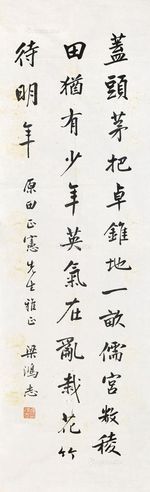 蓋頭茅把卓錐地一畝儒宮數稜
田猶有少年英氣在亂栽花竹
待明年
原田正憲先生雅正
梁鴻志